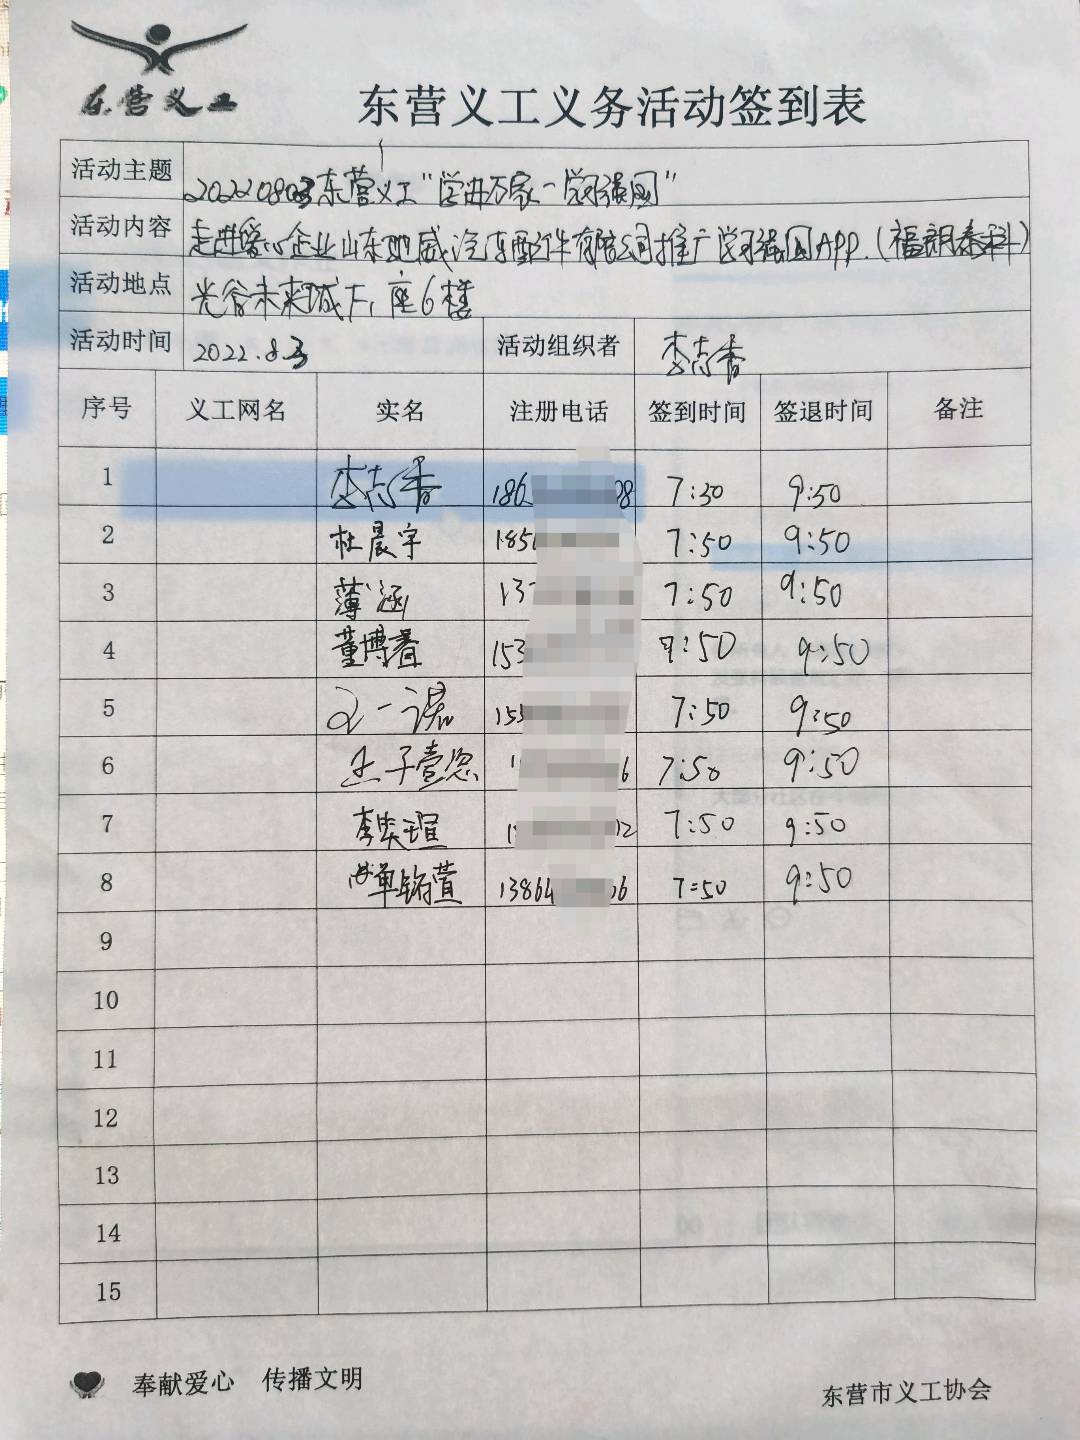 东营义工
东营义工义务活动签到表
活动主题 20220803东营义工“学进万家一学习强国”
活动内容 走进爱心企业山东地威汽车配件有限公司推广学习强国APP.(福朗泰科)
活动地点 光谷未来城 座6楼
活动时间 2022.8.3 活动组织者 李志香
序号 义工网名 实名 注册电话 签到时间 签退时间 备注
1 李志香 186 08 7:30 9:50
2 杜晨宇 185 7:50 9:50
3 薄涵 13 7:50 9:50
4 董博 153 7:50 9:50
5 一诺 155 7:50 9:50
6 王子壹 1 6 7:50 9:50
7 李奕瑄 1 12 7:50 9:50
8 单铭萱 13864 06 7:50 9:50
9
10
11
12
13
14
15
奉献爱心 传播文明
东营市义工协会